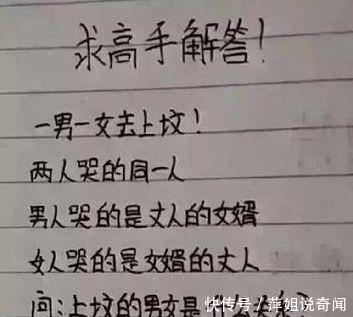 求高手解答!
一男一女去上坟!
两人哭的同一人
男人哭的是丈人的女婿
女人哭的是女婿的丈人
问:上坟的男女是
快传号/萍姐说奇闻